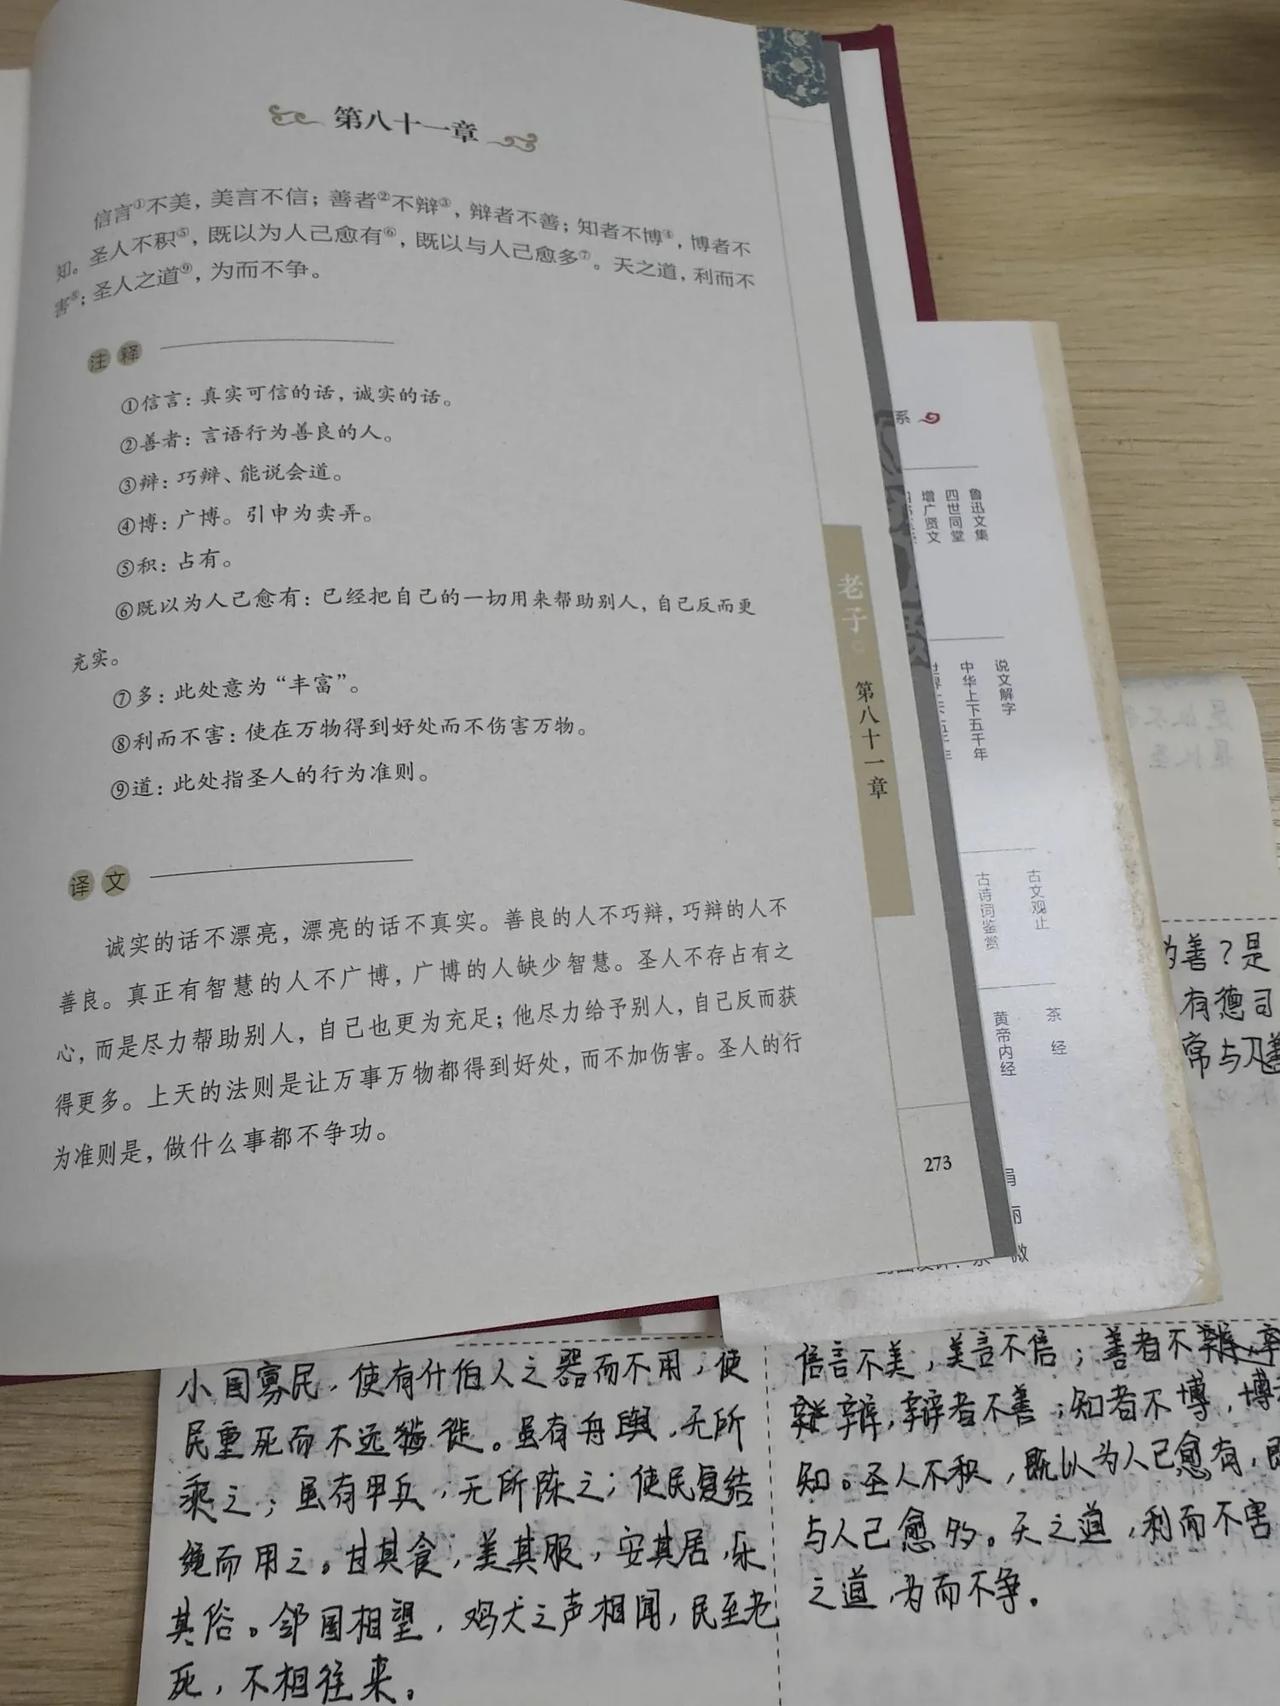 第八十一章
信言①不美，美言不信；善者②不辩③，辩者不善；知者不博④，博者不
知。圣人不积⑤，既以为人己愈有⑥，既以与人己愈多⑦。天之道，利而不
害⑧；圣人之道⑨，为而不争。
注释
①信言：真实可信的话，诚实的话。
②善者：言语行为善良的人。
③辩：巧辩、能说会道。
④博：广博。引申为卖弄。
⑤积：占有。
⑥既以为人己愈有：已经把自己的一切用来帮助别人，自己反而更
充实。
⑦多：此处意为“丰富”。
⑧利而不害：使在万物得到好处而不伤害万物。
⑨道：此处指圣人的行为准则。
译文
诚实的话不漂亮，漂亮的话不真实。善良的人不巧辩，巧辩的人不
善良。真正有智慧的人不广博，广博的人缺少智慧。圣人不存占有之
心，而是尽力帮助别人，自己也更为充足；他尽力给予别人，自己反而获
得更多。上天的法则是让万事万物都得到好处，而不加伤害。圣人的行
为准则是，做什么事都不争功。
老子
第八十一章
273
系
鲁迅文集
四世同堂
增广贤文
说文解字
中华上下五千年
古文观止
古诗词鉴赏
茶经
黄帝内经
的善？是
有德司
常与善
小国寡民，使有什伯人之器而不用，使
民重死而不远徙。虽有舟舆，无所
乘之；虽有甲兵，无所陈之；使民复结
绳而用之。甘其食，美其服，安其居，乐
其俗。邻国相望，鸡犬之声相闻，民至老
死，不相往来。
信言不美，美言不信；善者不
辩，辩者不善；知者不博，博
知。圣人不积，既以为人己愈有，
与人己愈多。天之道，利而不害
之道，为而不争。